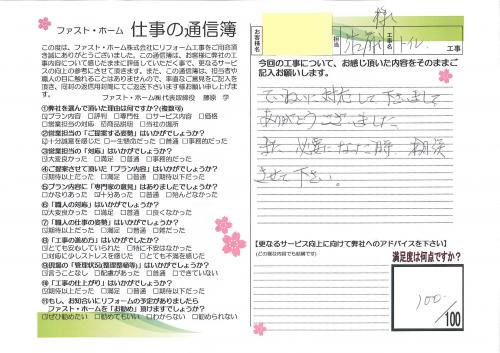 ファスト・ホーム 仕事の通信簿
この度は、ファスト・ホーム株式会社にリフォーム工事をご用命頂き
誠にありがとうございました。お客様が、我社が行いました工事
内容について感じたままに評価していただく事で、更なるサービ
スの向上の参考にさせて頂きます。また、この通信簿は、担当者や
職人の目に触れることはありませんので、率直なご意見をご記入を
頂き、同封の返信用封筒にてご返送下さいます様お願い申し上げま
す。
ファスト・ホーム㈱代表取締役 藤原 学
①弊社を選んで頂いた理由は何ですか?(複数可)
☐プラン内容 ☐評判 ☐専門性 ☐サービス内容 ☐価格
☐営業担当の対応 ☐商品説明 ☐当社の場所
②営業担当の「ご提案する姿勢」はいかがでしょうか?
☐一生懸命だった ☐普通 ☐事務的だった
③営業担当の「対応」はいかがでしょうか?
☐大変良かった ☐満足 ☐普通 ☐事務的だった
④ご提案させて頂いた「プラン内容」はいかがでしょうか?
☐期待以上だった ☐満足 ☐普通 ☐期待以下だった
⑤プラン内容に「専門家の意見」はありましたでしょうか?
☐かなりあった ☐十分あった ☐普通 ☐殆んどなかった
⑥「職人の対応」はいかがでしょうか?
☐大変良かった ☐満足 ☐普通 ☐良くなかった
⑦「職人の仕事の姿勢」はいかがでしょうか?
☐期待以上だった ☐満足 ☐普通 ☐期待以下だった
⑧「工事の進め方」はいかがでしたか?
☐とても安心していられた ☐特に不安はなかった
☐対応に少しストレスを感じた ☐とても不満を感じた
⑨現場の「管理状況(整理整頓等)」はいかがでしょうか?
☐言うことなし ☐配慮があった ☐普通 ☐できていない
⑩「工事の仕上がり」はいかがでしょうか?
☐期待以上だった ☐満足 ☐普通 ☐期待以下だった
⑪もし、お知合いにリフォームの予定がありましたら
ファスト・ホームを「お勧め」頂けますでしょうか?
☐ぜひ勧めたい ☐勧めてもいい ☐わからない ☐勧められない
お客様名 様 担当 佐藤 工事名 トイレ 工事
今回の工事について、お感じ頂いた内容をそのままご
記入お願いします。
ていねいに対応して下さいまして
ありがとうございました
また 必要になった時、相談
させて下さい。
【更なるサービス向上に向けて弊社へのアドバイスを下さい】
(どの様な内容でも結構です)
満足度は何点ですか?
100
/100